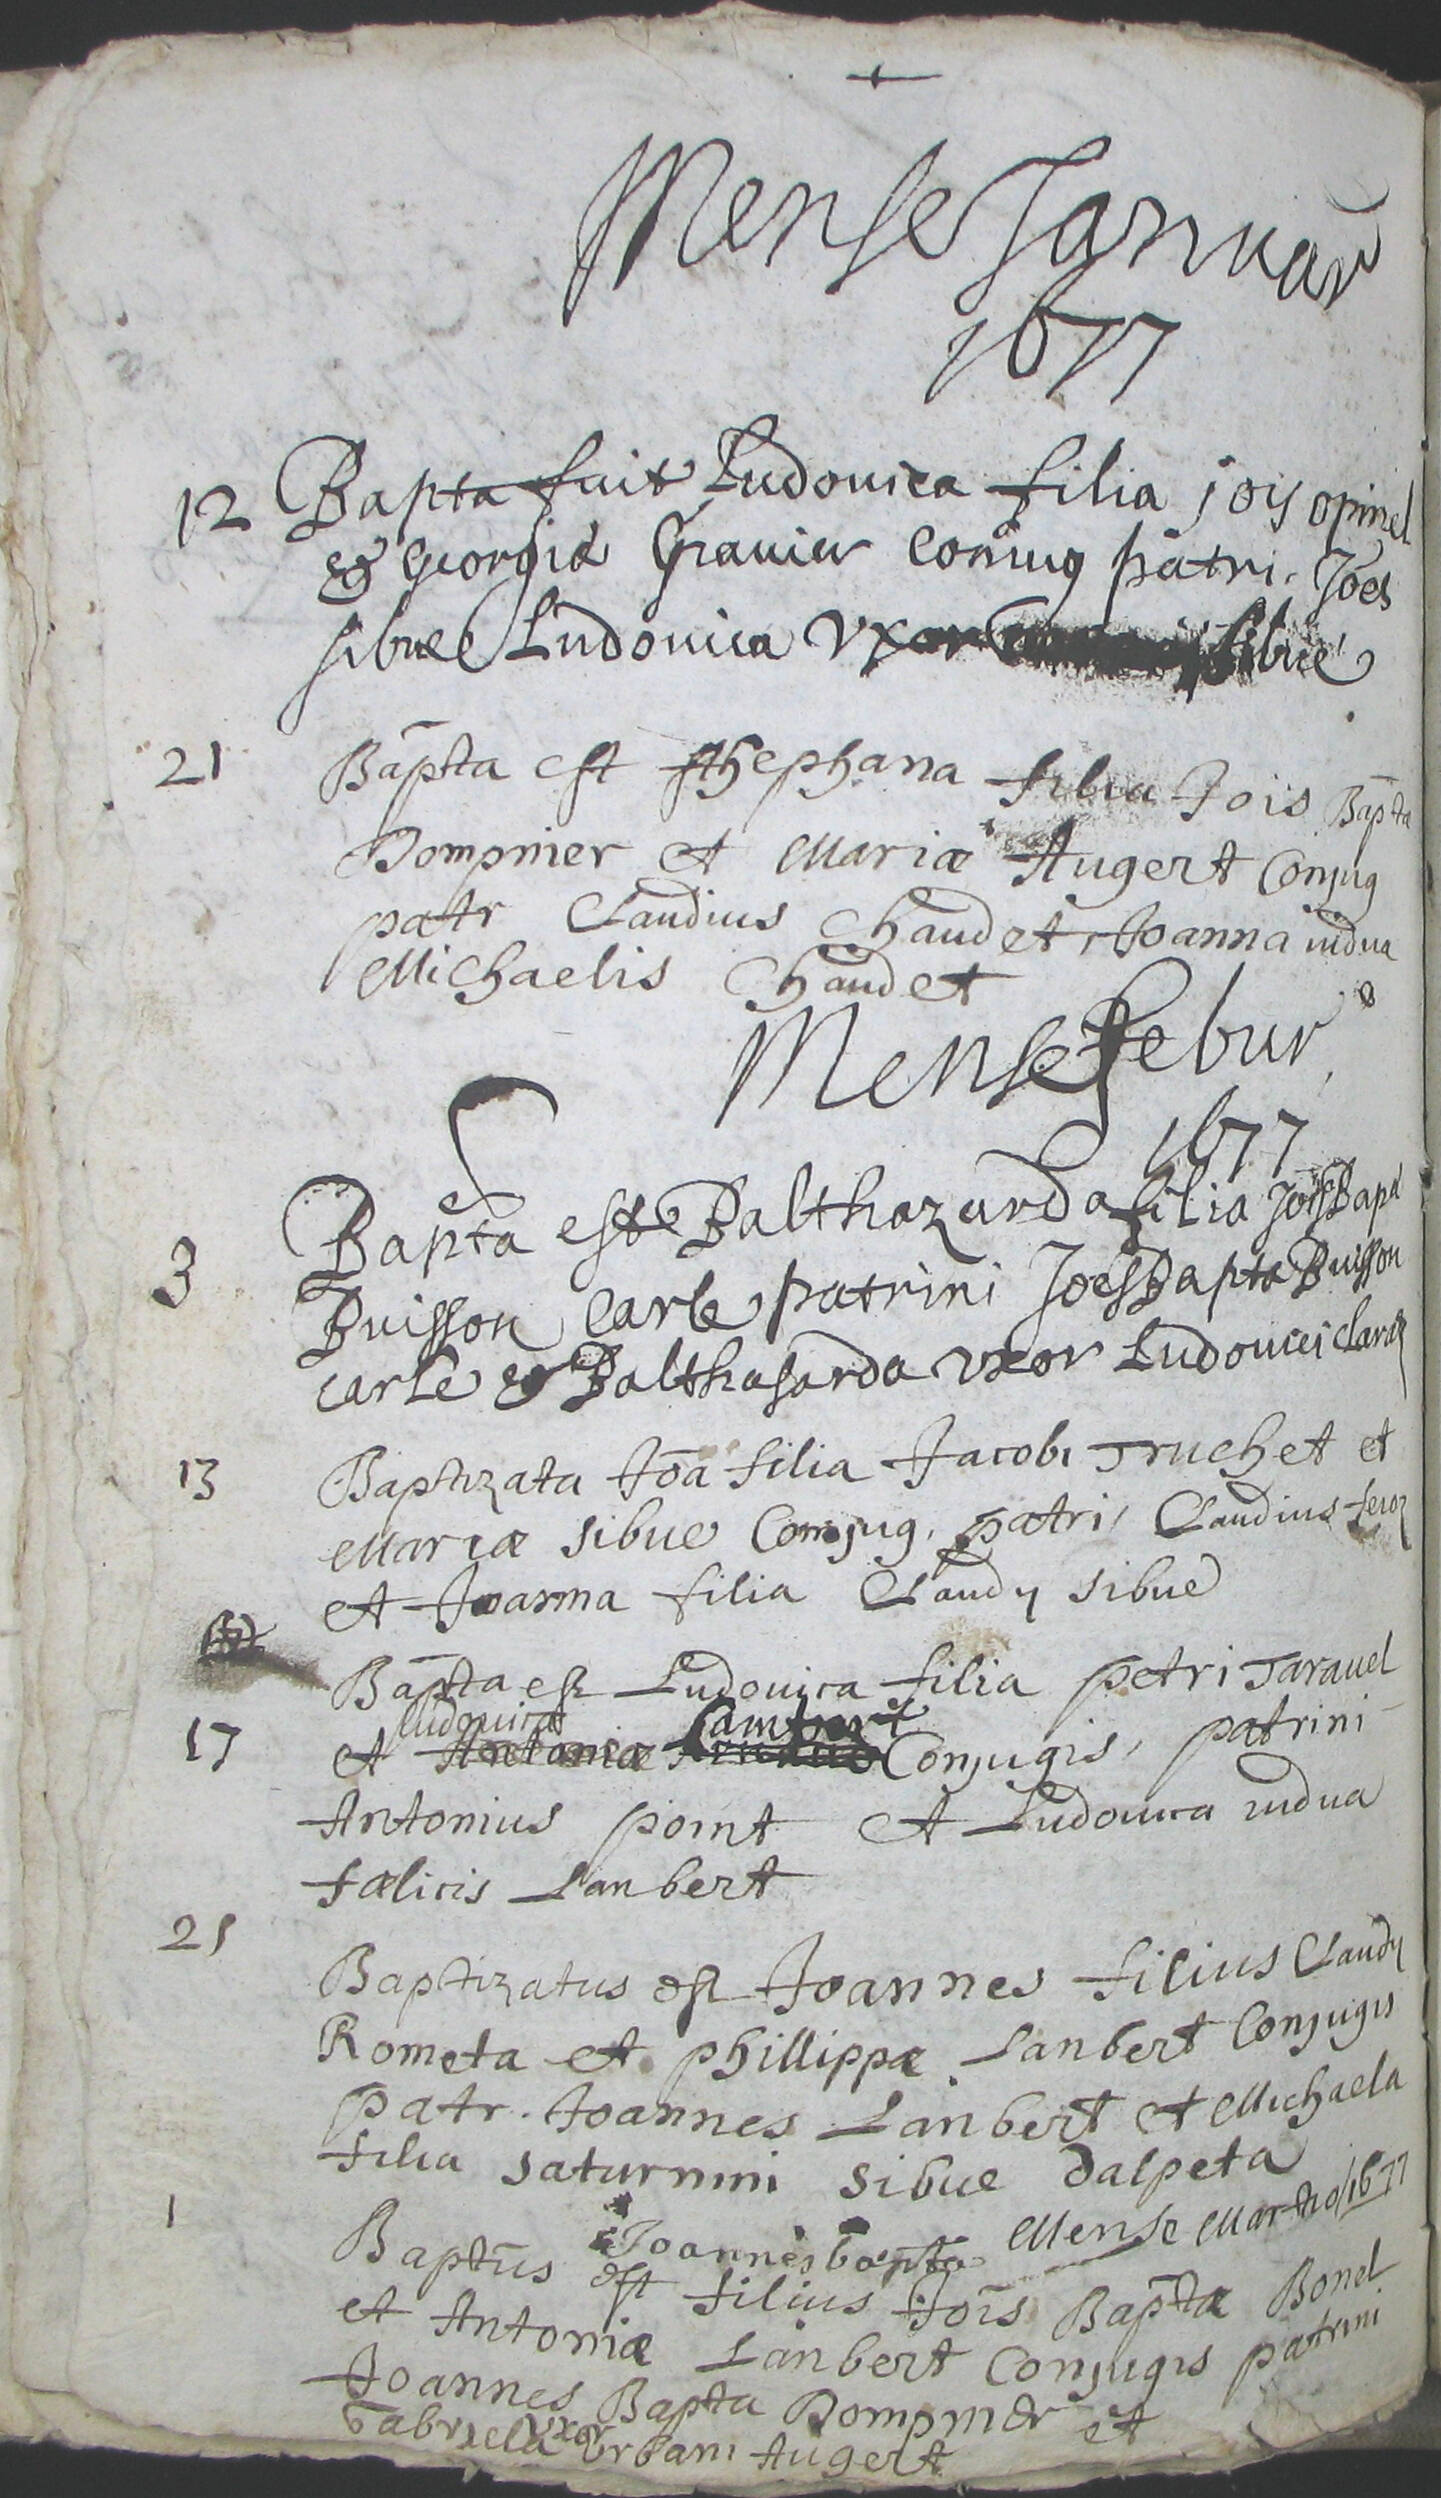 Mense Januar
1677
12 Bapta fuit Ludovica filia jois opinel
& Georgia Gravier coniug patri. Joes
sibue Ludovica Vxor sibué
21 Bapta est sthephana filia Jois Bapta
Dompnier et Mariæ Augert Conjug
patr Claudius Chaudet, Joanna vidua
Michaelis Chaudet
Mense Febur
1677
3 Bapta est Balthazarda filia Jois Bapt
Buisson Carle patrini Joes Bapta Buisson
carle & Balthasarda vxor Ludovici claraz
13 Baptizata Joa filia Jacobi Truchet et
Mariæ sibue Conjug. patri, Claudius
et Joanna filia Claudy sibue
Bapta est Ludovica filia petri Taravel
ludovicæ Lambert
17 et Antoniæ Conjugis, patrini
Antonius point et Ludovica vidua
fælicis Lanbert
21
Baptizatus est Joannes filius Claudy
Rometa et phillippæ Lanbert Conjugis
patr. Joannes Lanbert et Michaela
filia saturnini sibue dalpeta
Mense Martio 1677
1 Joannes bapta
Baptus est filius Jois Baptæ Bonel
et Antoniæ Lanbert Conjugis patrini
Joannes Bapta Dompnier et
Gabriela vxor Vrbani Augert